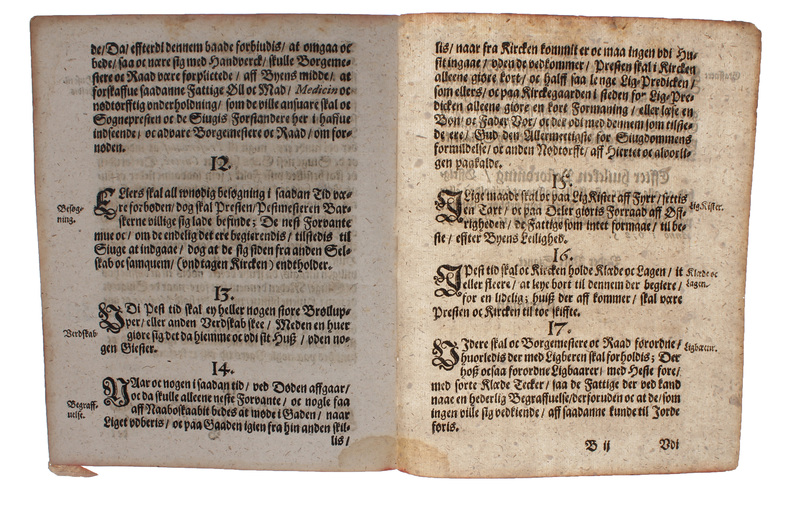 de/ Da/ effterdi dennem baade forbiudis/ at omgaa oc
bede/ saa oc nære sig med Handverck/ skulle Borgeme-
stere oc Raad være forplictede / aff Byens midde/ at
forskaffue saadanne Fattige Øll oc Mad/ Medicin oc
nødtørfftig vnderholdning/ som de ville ansuare skal oc
Sognepresten oc de Siugis Forstandere her i haffue
indseende/ oc advare Borgemestere oc Raad/ om for-
nøden.
12.
Ellers skal all vnødig besøgning i saadan Tid væ-
re forboden/ dog skal Presten/ Pestmesteren Bar-
skerne villige sig lade befinde; De nest Forvante
mue oc/ om de endelig det ere begierendis/ tilstedis til
Siuge at indgaae / dog at de sig siden fra anden Sel-
skab oc samquem/ (vndtagen Kircken) endtholder.
Besøg-
ning.
13.
VDi Pest tid skal ey heller nogen store Brøllup-
per/ eller anden Verdskab skee / Meden en huer
giøre sig det da hiemme oc vdi sit Huß / vden no-
gen Giester.
Verdskab
14.
NAar oc nogen i saadan tid / ved Døden affgaar/
oc da skulle alleene neste Forvante / oc nogle faa
aff Naaboskabit bedes at møde i Gaden / naar
Liget vdberis / oc paa Gaaden igien fra hin anden skil-
lis /
Begraff-
uelse.
lis/ naar fra Kircken kommit er oc maa ingen vdi Hu-
sit ingaae / vden de vedkommer / Presten skal i Kircken
alleene giøre kort/ oc halff saa lenge Lig-Predicken /
som ellers/ oc paa Kirckegaarden i steden for Lig-Pre-
dicken alleene giøre en kort Formaning / eller læse en
Bøn/ oc Fader Vor/ oc der vdi med dennem som tilste-
de ere/ Gud den Allermectigste for Siugdommens
formildelse/ oc anden Nødtorfft/ aff Hiertet oc alvorli-
gen paakalde.
15.
ILige maade skal oc paa Lig Kister aff Fyrr/ settis
en Tart / oc paa Deler giøris Forraad aff Øff-
righeden / de Fattige som intet formaae / til be-
ste / effter Byens Leilighed.
Lig Kister.
16.
IPest tid skal oc Kircken holde Klæde oc Lagen / it
eller fleere / at leye bort til dennem der begiere/
for en lidelig; huiß der aff kommer / skal være
Presten oc Kircken til toe skiffte.
Klæde oc
Lagen.
17.
VJdere skal oc Borgemestere oc Raad forordne/
huorledis der med Ligberen skal forholdis; Der
hoß oc saa forordne Ligbaarer/ med Heste fore/
med sorte Klæde Tecker / saa de Fattige der ved kand
naae en hederlig Begraffuelse/ der foruden oc at de/ som
ingen ville sig vedkiende / aff saadanne kunde til Jorde
føris.
B ij
Vdi